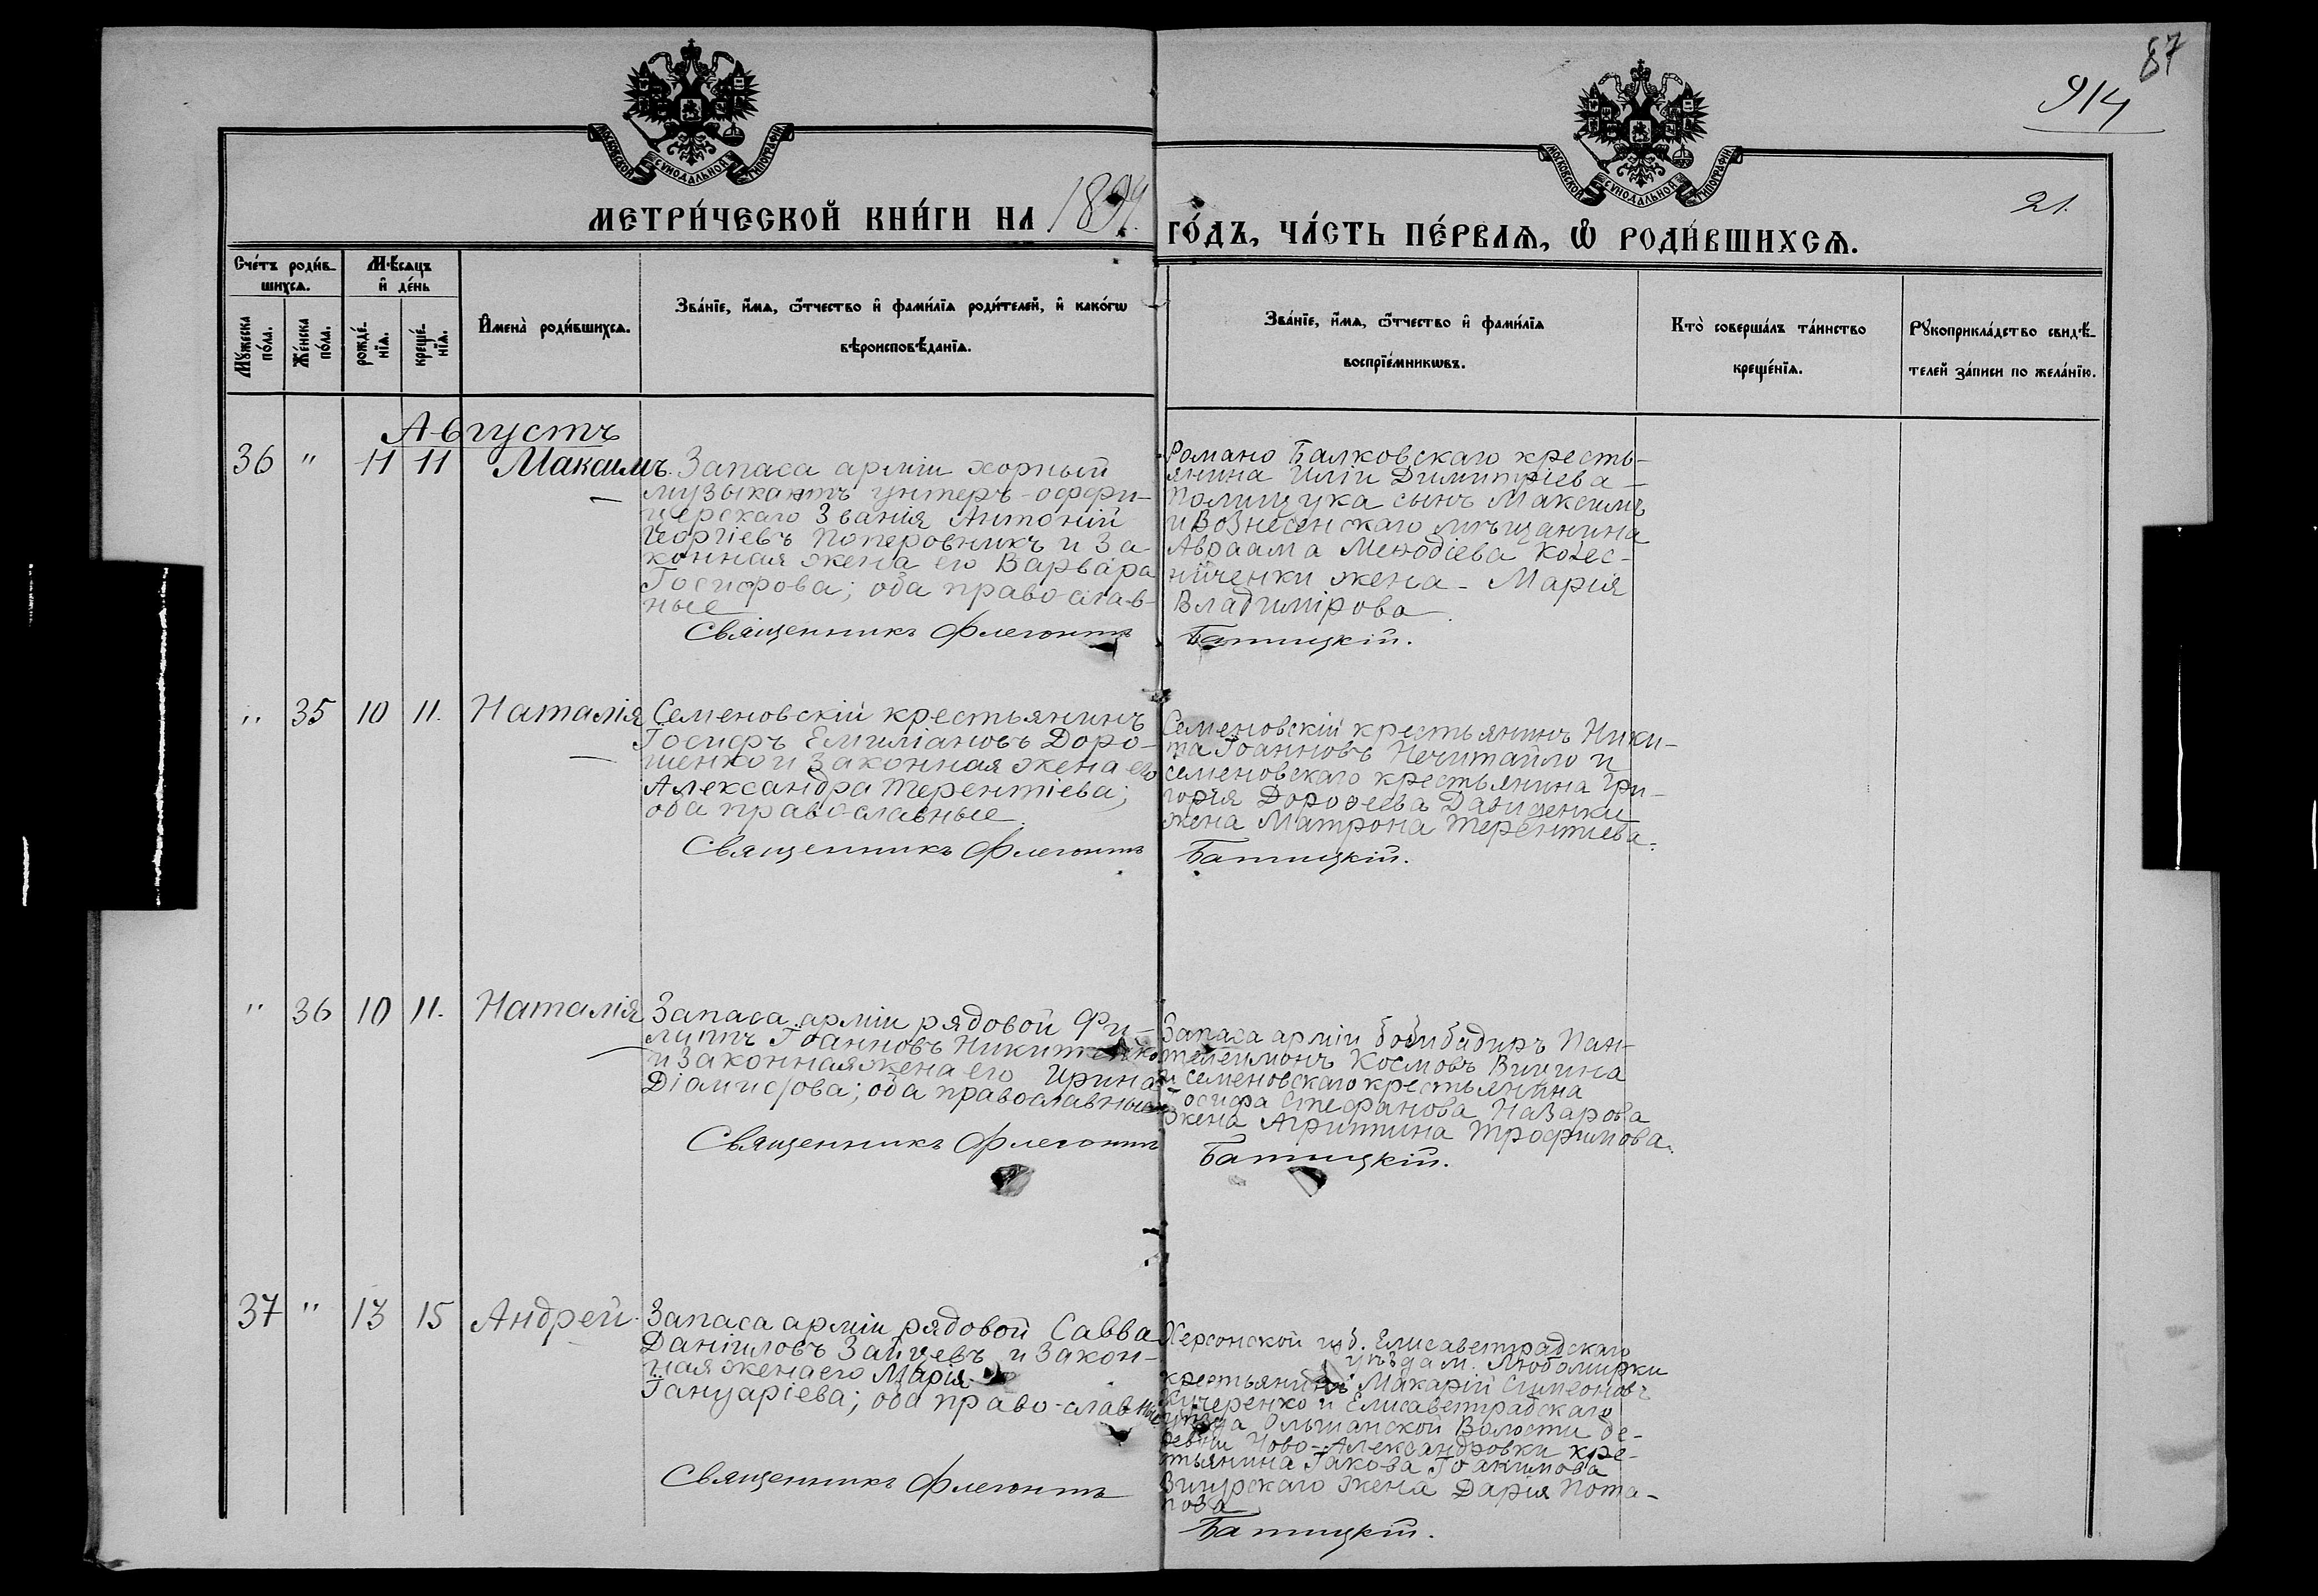 87
914
21.
МОСКОВСКОЙ СѴНОДАЛЬНОЙ ТИПОГРАФІИ
МОСКОВСКОЙ СѴНОДАЛЬНОЙ ТИПОГРАФІИ
МЕТРИ́ЧЕСКОЙ КНИ́ГИ НА 1894. ГО́ДЪ, ЧА́СТЬ ПЕ́РВАѦ, Ѡ҆ РОДИ́ВШИХСѦ.
Сче́тъ роди́в-
шихсѧ.
Мꙋ́жеска по́ла.
Же́нска по́ла.
Мѣ́сѧцъ
и҆ де́нь
рожде́-
нїѧ.
креще́-
нїѧ.
И҆мена̀ роди́вшихсѧ.
Зва́нїе, и҆́мѧ, ѻ҆́тчество и҆ фами́лїѧ роди́телей, и҆ како́гѡ
вѣроисповѣ́данїѧ.
Зва́нїе, и҆́мѧ, ѻ҆́тчество и҆ фами́лїѧ
воспрїе́мникѡвъ.
Кто̀ соверша́лъ та́инство
креще́нїѧ.
Рꙋкоприкла́дство свидѣ́-
телей за́писи по жела́нїю.
Августъ
36 " 11 11 Максимъ. Запаса арміи хорный
музыкантъ унтеръ-оффи-
церскаго Званія Антоній
Георгіевъ Поперовникъ и За-
конная жена его Варвара
Іосифова; оба православ-
ные
Священникъ Флегонтъ
Романо Балковскаго кресть-
янина Иліи Димитріева
Полищука сынъ Максимъ
и Вознесенскаго мѣщанина
Авраама Меѳодіева Колес-
ниченки жена - Марія
Владимірова
Батицкій.
" 35 10 11. Наталія Семеновскій крестьянинъ
Іосифъ Емиліановъ Доро-
шенко и Законная жена его
Александра Терентіева;
оба православные.
Священникъ Флегонтъ
Семеновскій крестьянинъ Ники-
та Іоанновъ Нечитайло и
семеновскаго крестьянина Гри-
горія Дороѳеева Давиденки
жена Матрона Терентіева.
Батицкій.
" 36 10 11. Наталія Запаса арміи рядовой Фи-
липпъ Іоанновъ Никитенко
и Законная жена его Ирина
Діамидова; оба православные
Священникъ Флегонтъ
Запаса арміи бомбадиръ Пан-
телеимонъ Космовъ
и семеновскаго крестьянина
Іосифа Стефанова Назарова
жена Агриппина Трофимова.
Батицкій.
37 " 13 15 Андрей. Запаса арміи рядовой Савва
Даніиловъ Зайцевъ и Закон-
ная жена его Марія
Іануаріева; оба православные
Священникъ Флегонтъ
Херсонской губ. Елисаветградскаго
уѣзда м. Любомирки
крестьянинъ Макарій Симеоновъ
Кучеренко и Елисаветградскаго
уѣзда Ольшанской Волости де-
ревни Ново-Александровки кре-
тьянина Іакова Іоакимова
жена Дарія Пота-
пова
Батицкій.